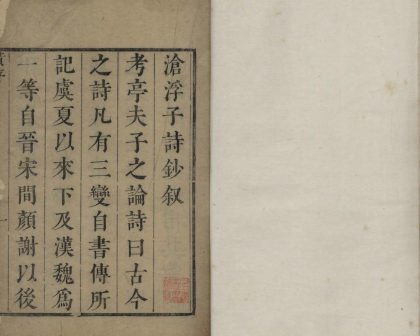 滄浮子詩鈔叙
考亭夫子之論詩曰古今
之詩凡有三變自書傳所
記虞夏以來下及漢魏爲
一等自晉宋間顔謝以後